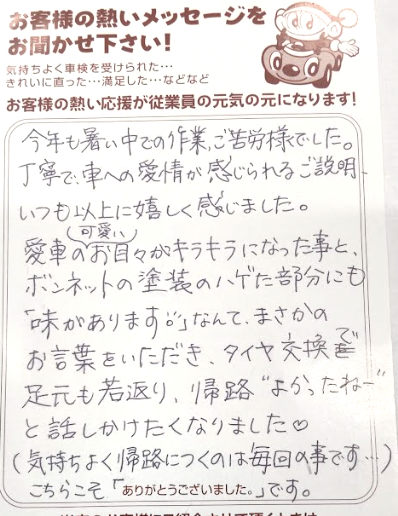 お客様の熱いメッセージを
お聞かせ下さい!
気持ちよく車検を受けられた…
きれいに直った…満足した…などなど
お客様の熱い応援が従業員の元気の元になります!
今年も暑い中での作業、ご苦労様でした。
丁寧で、車への愛情が感じられるご説明、
いつも以上に嬉しく感じました。
愛車の(可愛い)お目々がキラキラになった事と、
ボンネットの塗装のハゲた部分にも
「味があります」なんて、まさかの
お言葉をいただき、タイヤ交換で
足元も若返り、帰路“よかったねー”
と話しかけたくなりました♡
(気持ちよく帰路につくのは毎回の事です…)
こちらこそ「ありがとうございました。」です。